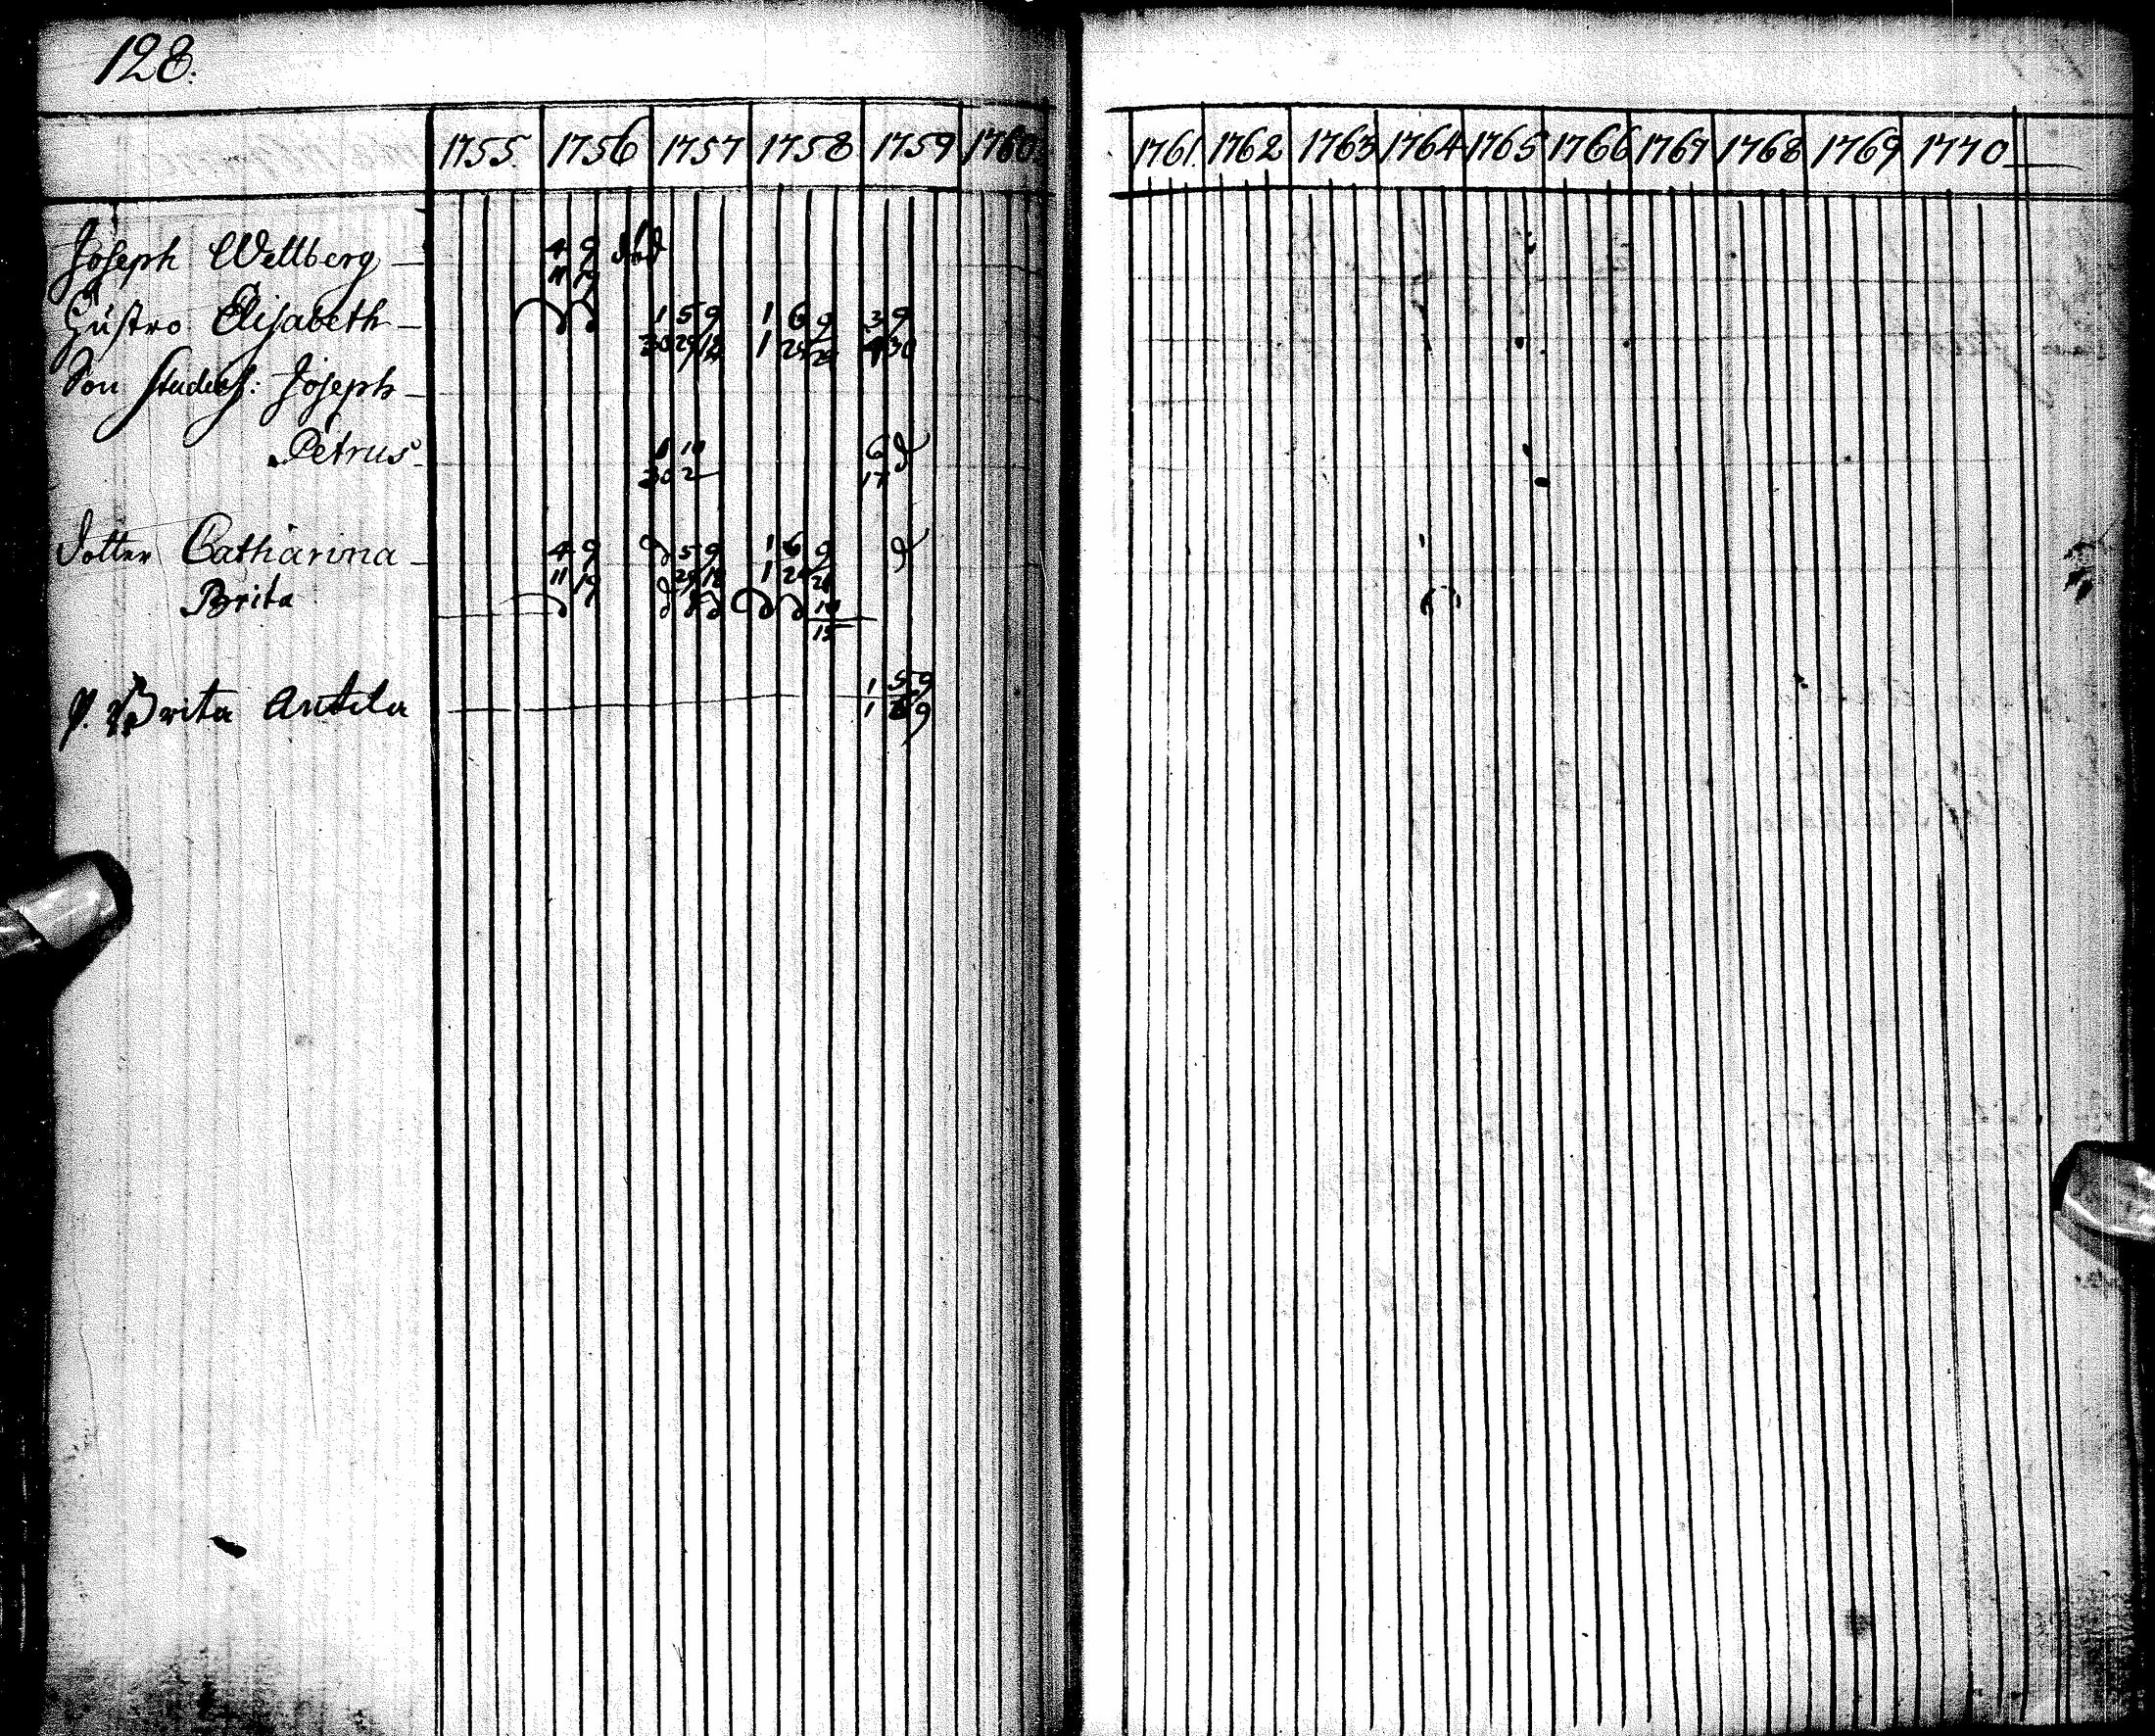 128.
1755. 1756 1757 1758 1759 1760. 1761. 1762 1763 1764 1765 1766 1767 1768 1769 1770
Joseph Wellberg 4 9 död
11 19
Hustro Elisabeth 1 5 9 1 6 9 3 9
30 29 18 1 24 4 30
Son Joseph
Petrus 1 10 6
30 2 17
Dotter Catharina 4 9 5 9 1 6 9
11 19 29 18 1 24
Brita 10
15
Brita Antila 1 5 9
1 9